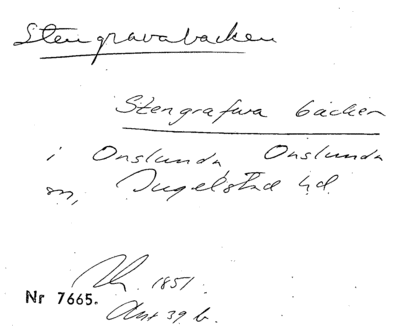 Stengravabacken
Stengrafwa backen
i Onslunda, Onslunda
sn, Ingelstad hd.
1851.
Nr 7665.
Akt 39. b.